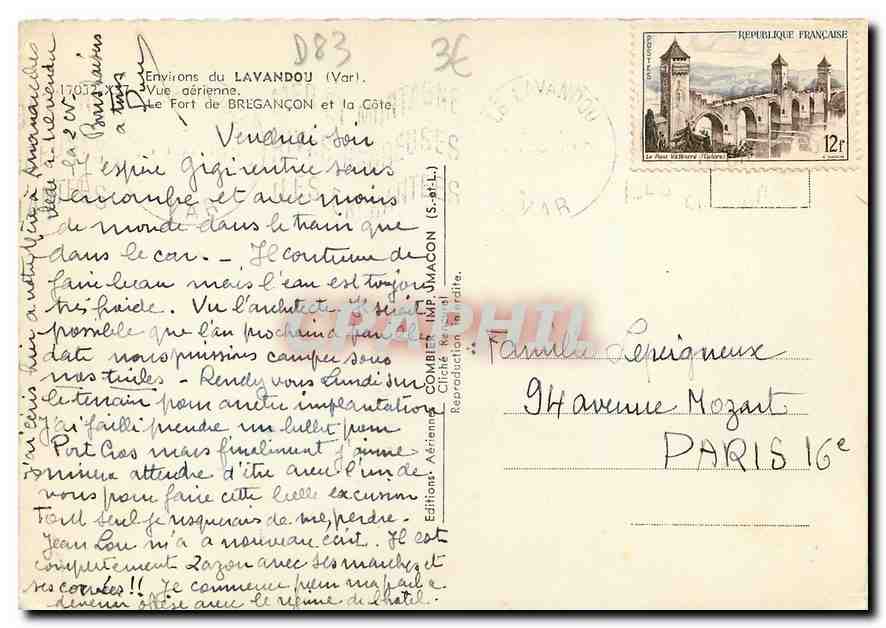 D83
3€
Environs du LAVANDOU (Var).
Vue aérienne.
Le Fort de BRÉGANÇON et la Côte.
Vendredi soir
J'espère Gigi rentrée sans
encombre et avec moins
de monde dans le train que
dans le car. — Il continue de
faire beau mais l'eau est toujours
très froide. Vu l'architecte. Il serait
possible que l'an prochain à pareille
date nous puissions camper sous
nos tuiles — Rendez vous Lundi sur
le terrain pour arrêter implantation
J'ai failli prendre un billet pour
Port Cros mais finalement j'aime
mieux attendre d'être avec l'un de
vous pour faire cette belle excursion
Tout seul je risquerais de me perdre.
Jean Lou m'a à nouveau écrit. Il est
complètement avec ses marches et
ses corvées!! Je commence pour ma part à
devenir obèse avec le régime de l'hotel.
J'ai écris hier à
la 2 CV.
Bons baisers
à tous
Editions Aériennes COMBIER IMP. MACON (S.-et-L.)
Cliché Ray
Reproduction interdite.
CPAPHIL
LE LAVANDOU
VAR
RÉPUBLIQUE FRANÇAISE
POSTES
Le Pont Valentré (Cahors)
12f
Famille Lepeigneux
94 avenue Mozart
PARIS 16e